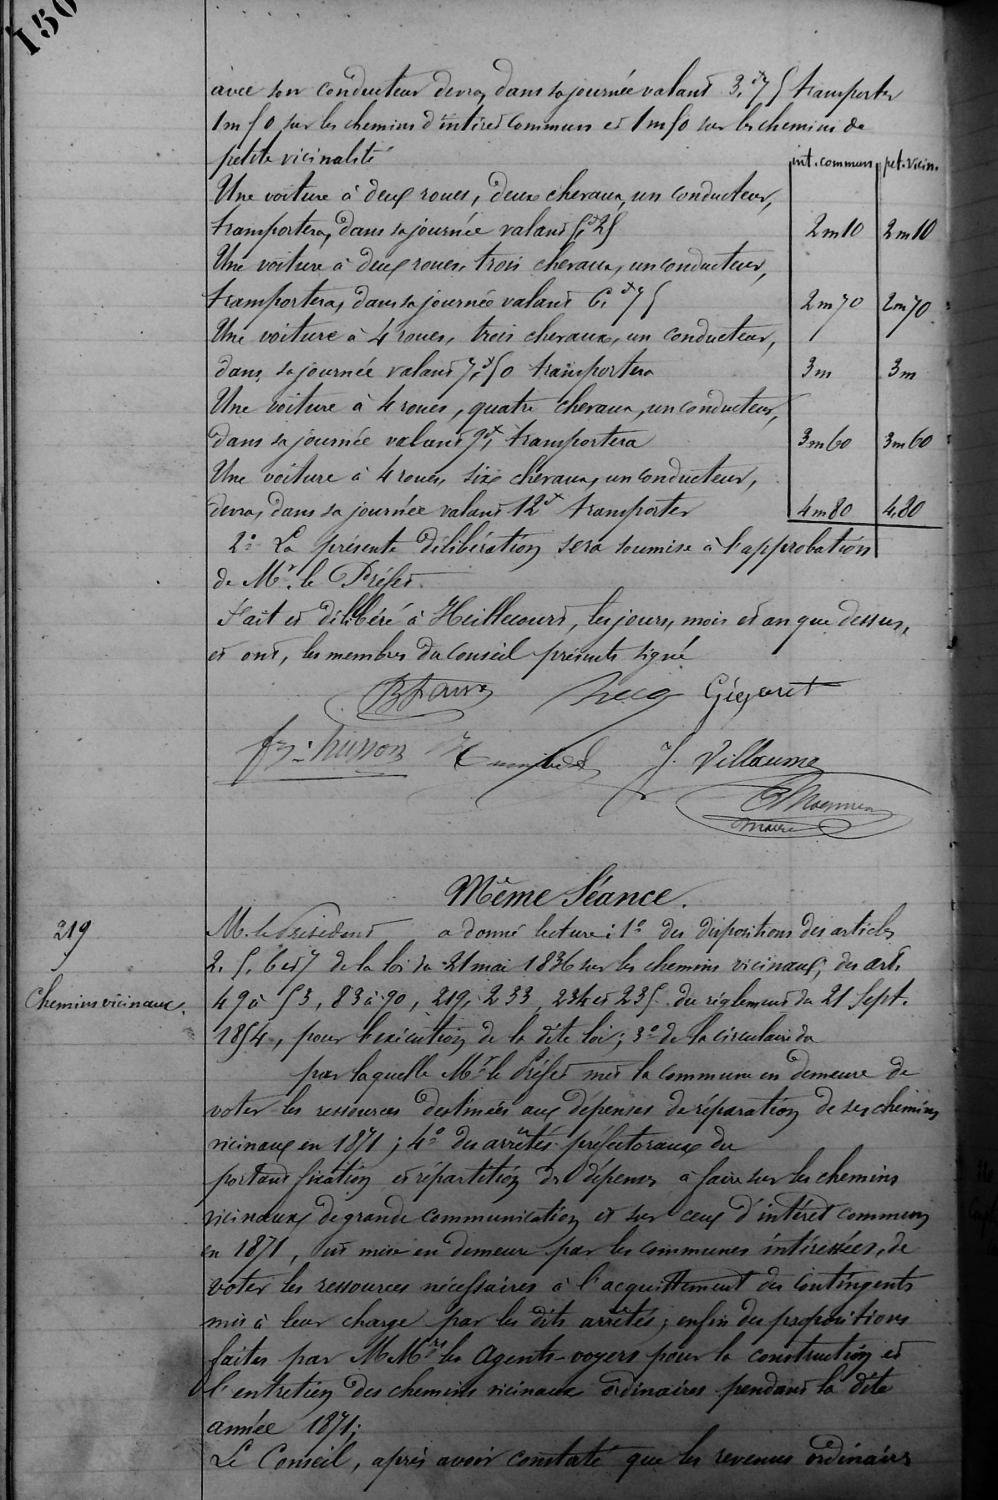 150
avec son conducteur devra, dans sa journée valant 3.f75 transporter
1m50 sur les chemins d'intéret commun et 1m50 sur les chemins de
petite vicinalité
int. commun pet. vicin.
Une voiture à deux roues, deux chevaux, un conducteur,
transportera, dans sa journée valant 5f25 2m10 2m10
Une voiture à deux roues, trois chevaux, un conducteur,
transportera, dans sa journée valant 6f75 2m70 2m70
Une voiture à 4 roues, trois chevaux, un conducteur,
dans sa journée valant 7f50 transportera 3m 3m
Une voiture à 4 roues, quatre chevaux, un conducteur,
dans sa journée valant 9f, transportera 3m60 3m60
Une voiture à 4 roues, six chevaux, un conducteur,
devra, dans sa journée valant 12f transporter 4m80 4,80
2° La présente délibération sera soumise à l'approbation
de Mr. le Préfet.
Fait et délibéré à Heillecourt, les jours, mois et an que dessus,
et ont, les membres du Conseil présents signé
Gégout
husson
J. Villaume
Maire
Même Séance.
219
Chemins vicinaux.
M. le Président a donné lecture: 1° des dispositions des articles
2, 5, 6 et 7 de la loi du 21 mai 1836 sur les chemins vicinaux; des art.
49 à 53, 83 à 90, 219, 233, 234 et 235 du réglement du 21 Sept.
1854, pour l'exécution de la dite loi; 3° de la circulaire du
par laquelle Mr le Préfet met la commune en demeure de
voter les ressources destinées aux dépenses de réparation de ses chemins
vicinaux en 1871; 4° des arrêtés préfectoraux du
portant fixation et répartition des dépenses à faire sur les chemins
vicinaux de grande communication et sur ceux d'intéret commun
en 1871, et mise en demeure par les communes intéressées, de
voter les ressources nécessaires à l'acquittement des contingents
mis à leur charge par les dits arrêtés; enfin des propositions
faites par MMrs les Agents-voyers pour la construction et
l'entretien des chemins vicinaux ordinaires pendant la dite
année 1871;
Le Conseil, après avoir constaté que les revenus ordinaires